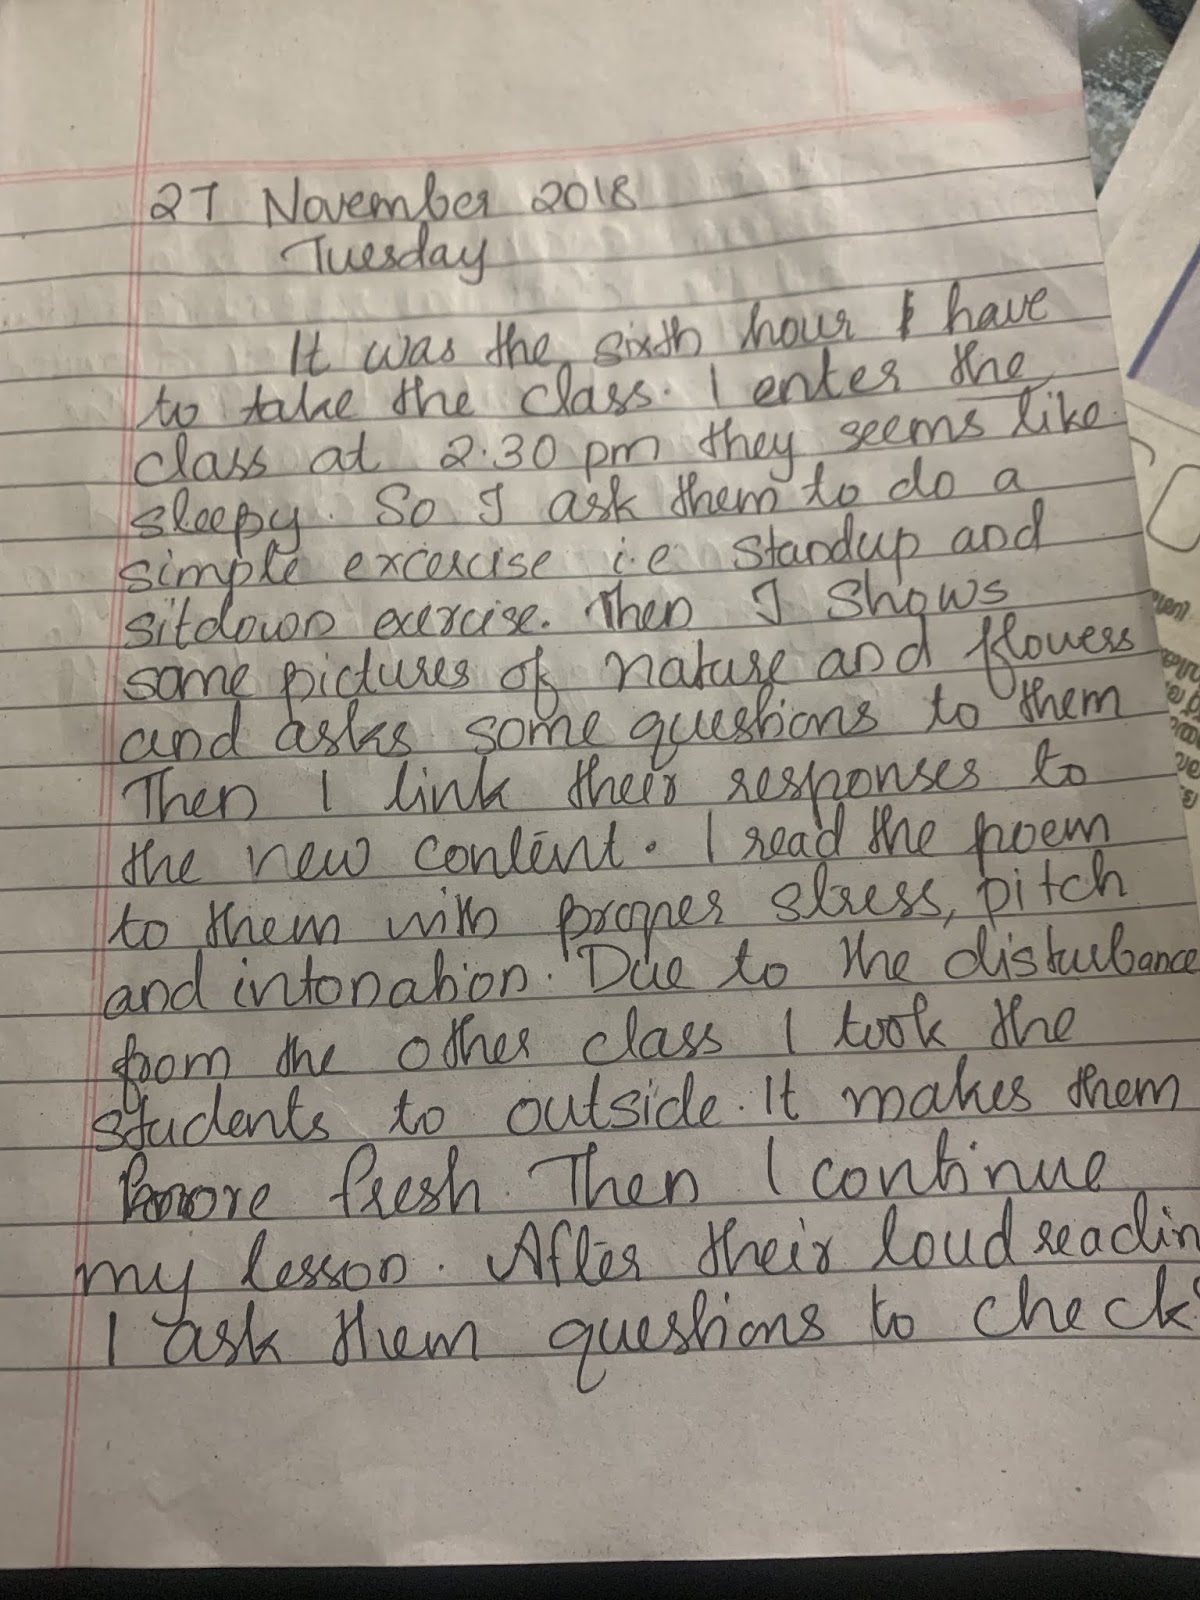 27 November 2018
Tuesday
It was the sixth hour I have
to take the class. I enter the
class at 2.30 pm they seems like
sleepy. So I ask them to do a
simple excercise i.e standup and
sitdown exercise. Then I shows
some pictures of nature and flowers
and asks some questions to them
Then I link their responses to
the new content. I read the poem
to them with proper stress, pitch
and intonation. Due to the disturbance
from the other class I took the
students to outside. It makes them
more fresh. Then I continue
my lesson. After their loud readin
I ask them questions to check